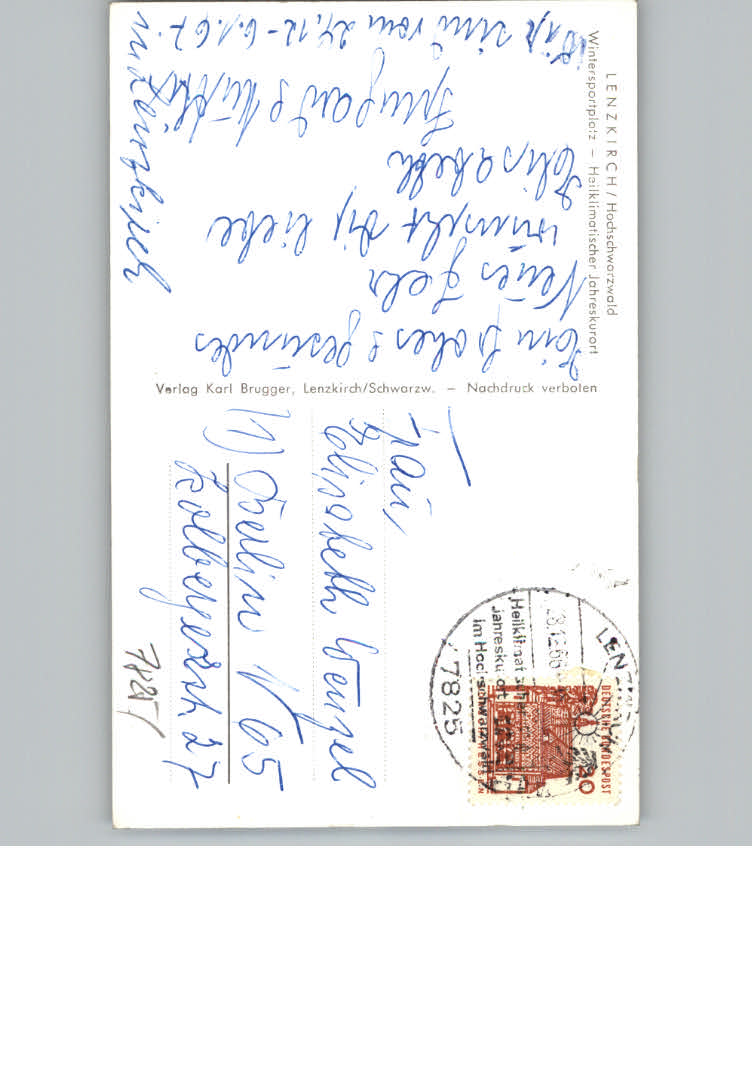 LENZKIRCH / Hochschwarzwald
Wintersportplatz – Heilklimatischer Jahreskurort
Ein frohes & gesundes
Neues Jahr
wünscht Dir liebe
Elisabeth
Wir sind vom 27.12 - 6.1.67.
in Lenzkirch
Verlag Karl Brugger, Lenzkirch/Schwarzw. – Nachdruck verboten
Frau,
Elisabeth Wenzel
(1) Berlin N 65
Kolbergerstr. 27
7825
LENZKIRCH
28.12.66
Heilklimatischer
Jahreskurort
im Hochschwarzwald
7825
DEUTSCHE BUNDESPOST
20